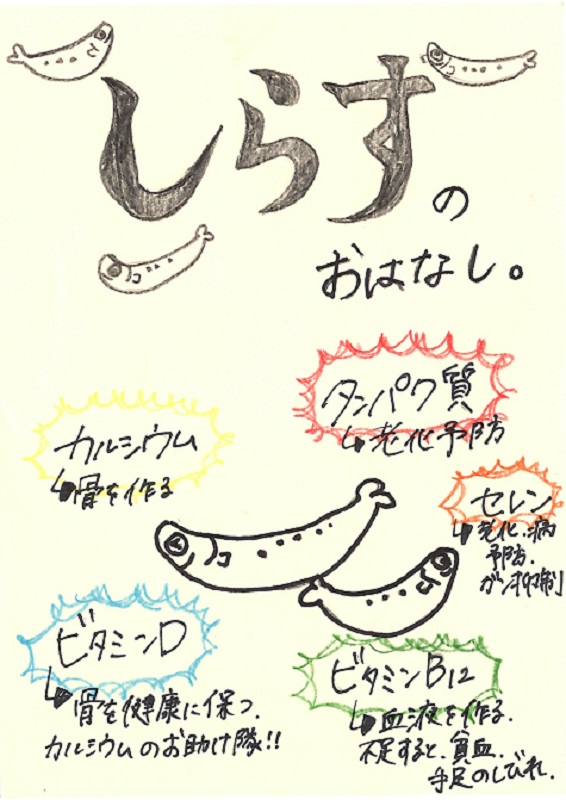 しらすの
おはなし。
タンパク質
↳老化予防
カルシウム
↳骨を作る
セレン
↳老化、病
予防.
ガン抑制
ビタミンD
↳骨を健康に保つ.
カルシウムのお助け隊!!
ビタミンB12
↳血液を作る.
不足すると、貧血.
手足のしびれ.